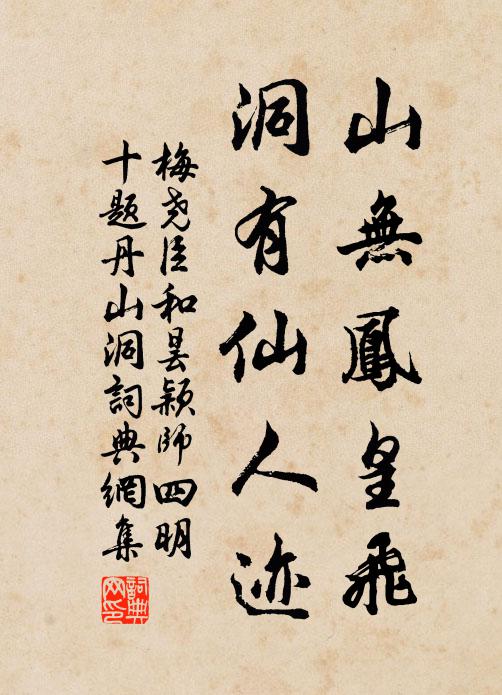 山無鳳皇飛
洞有仙人迹
梅尧臣和昙颖师四明
十题丹山洞詞典網集
詞典网印